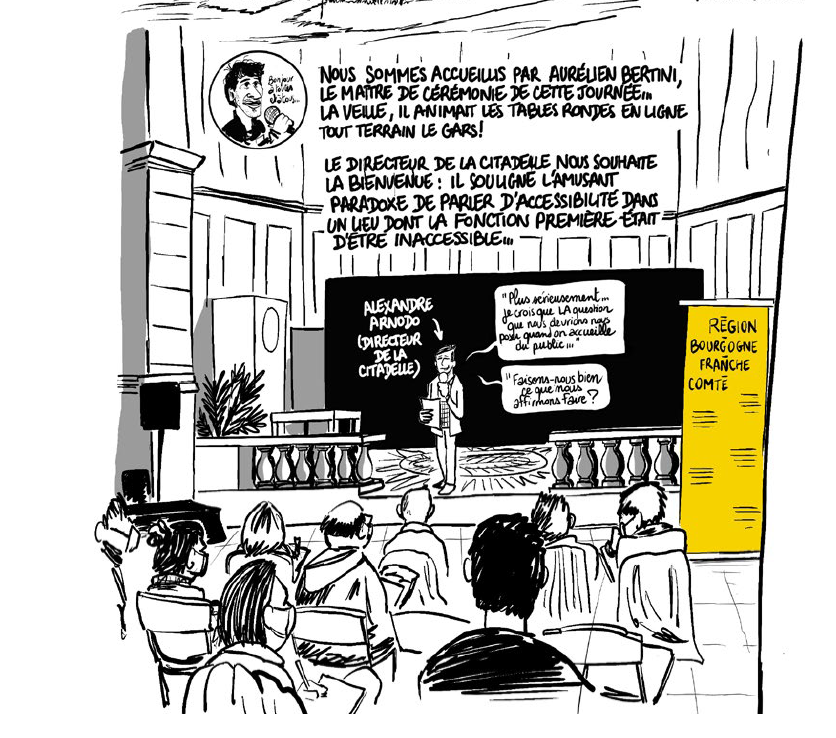 Bonjour
à tous
NOUS SOMMES ACCUEILLIS PAR AURÉLIEN BERTINI,
LE MAÎTRE DE CÉRÉMONIE DE CETTE JOURNÉE...
LA VEILLE, IL ANIMAIT LES TABLES RONDES EN LIGNE
TOUT TERRAIN LE GARS!
LE DIRECTEUR DE LA CITADELLE NOUS SOUHAITE
LA BIENVENUE : IL SOULIGNE L'AMUSANT
PARADOXE DE PARLER D'ACCESSIBILITÉ DANS
UN LIEU DONT LA FONCTION PREMIÈRE ÉTAIT
D'ÊTRE INACCESSIBLE...
ALEXANDRE
ARNODO
(DIRECTEUR
DE LA
CITADELLE)
"Plus sérieusement...
je crois que LA question
que nous devrions nous
poser quand on accueille
du public..."
"Faisons-nous bien
ce que nous
affirmons faire ?
RÉGION
BOURGOGNE
FRANCHE
COMTÉ